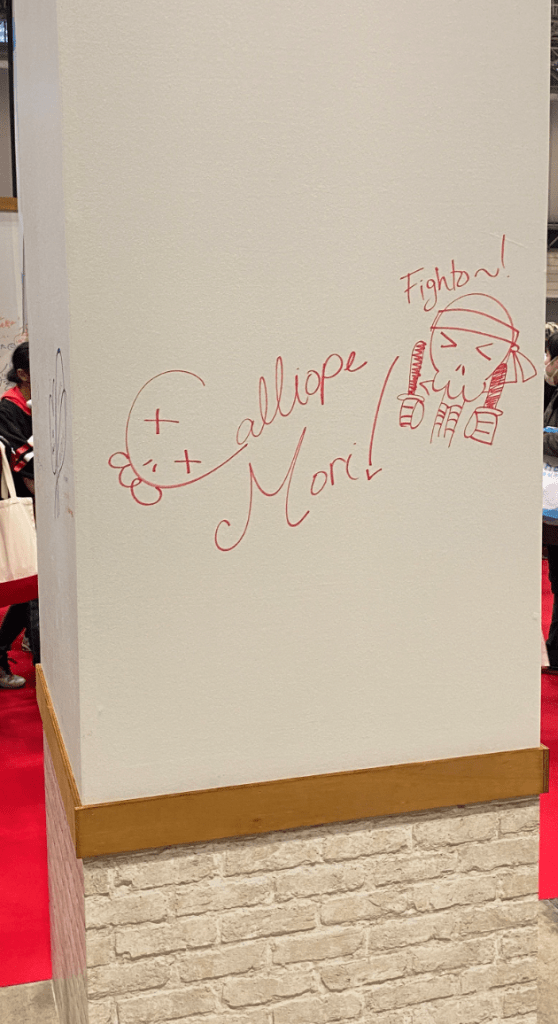 Fighto~!
Calliope
Mori